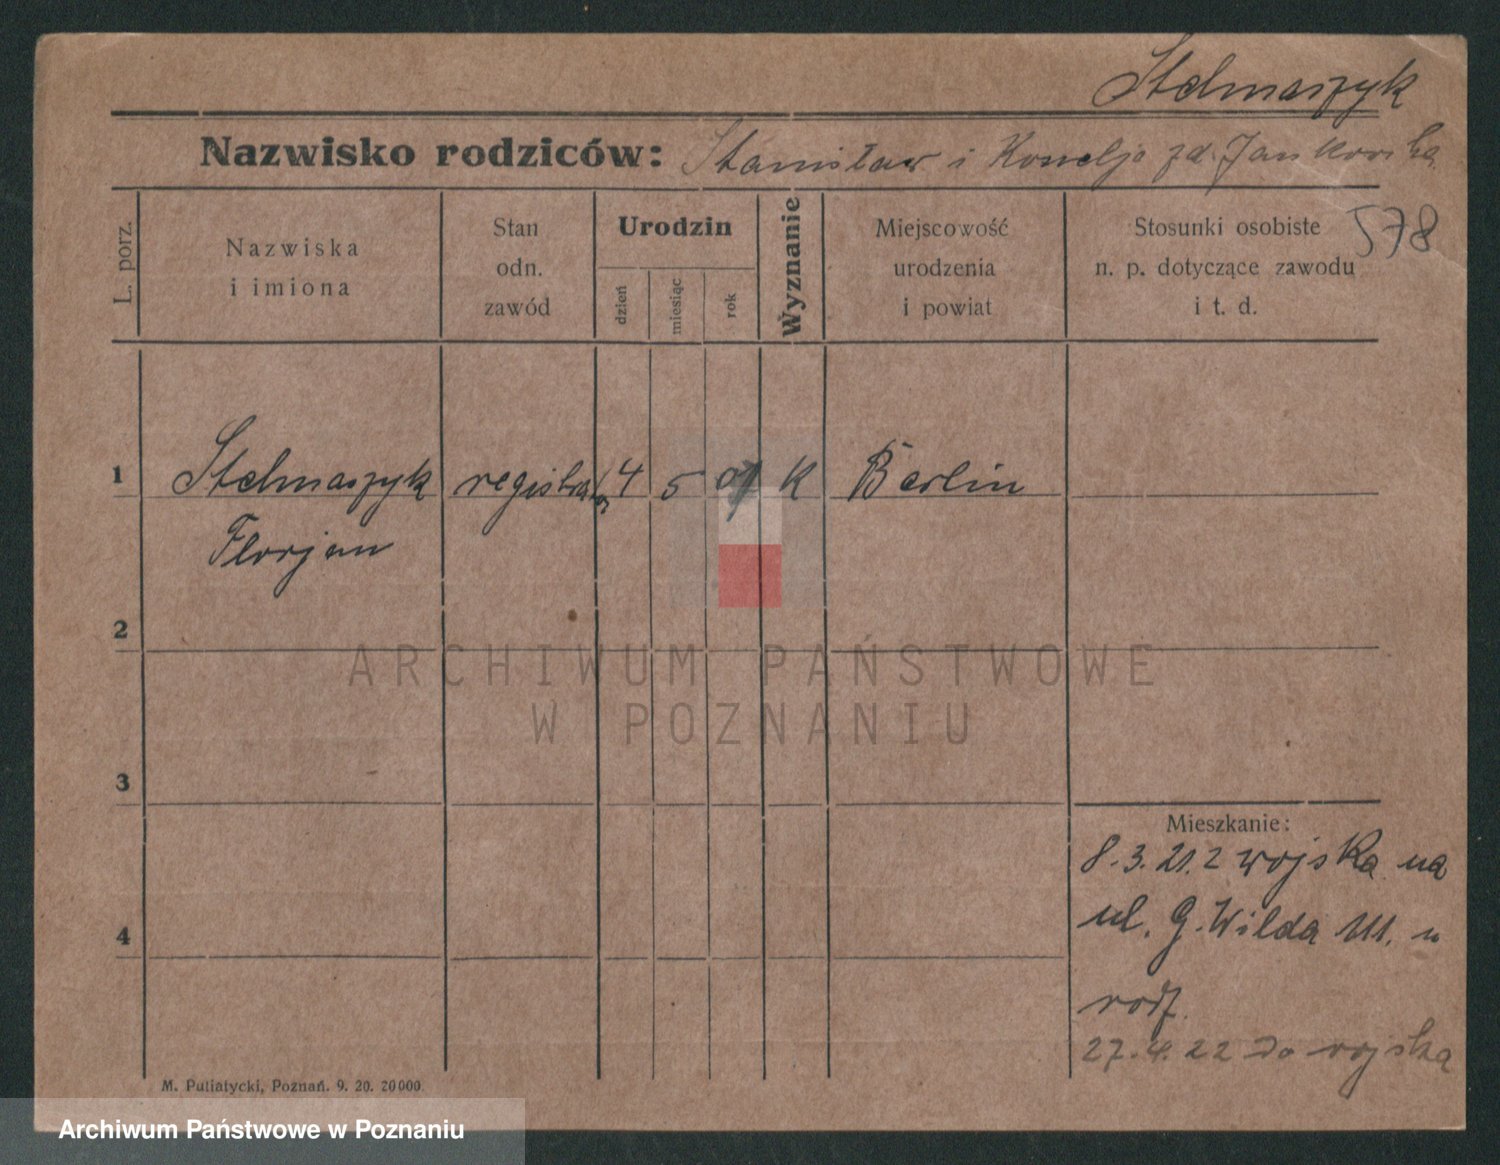 Stelmaszyk
Nazwisko rodziców: Stanisław i Kornelja zd. Jankowska
578
L. porz.
Nazwiska
i imiona
Stan
odn.
zawód
Urodzin
dzień
miesiąc
rok
Wyznanie
Miejscowość
urodzenia
i powiat
Stosunki osobiste
n. p. dotyczące zawodu
i t. d.
1 Stelmaszyk registrator 4 5 01 K Berlin
Florjan
2
ARCHIWUM PAŃSTWOWE
W POZNANIU
3
Mieszkanie:
8.3.21. z wojska na
ul. G. Wilda 111. u
4
rodz.
27.4.22 do wojska
M. Putiatycki, Poznań. 9. 20. 20000.
Archiwum Państwowe w Poznaniu